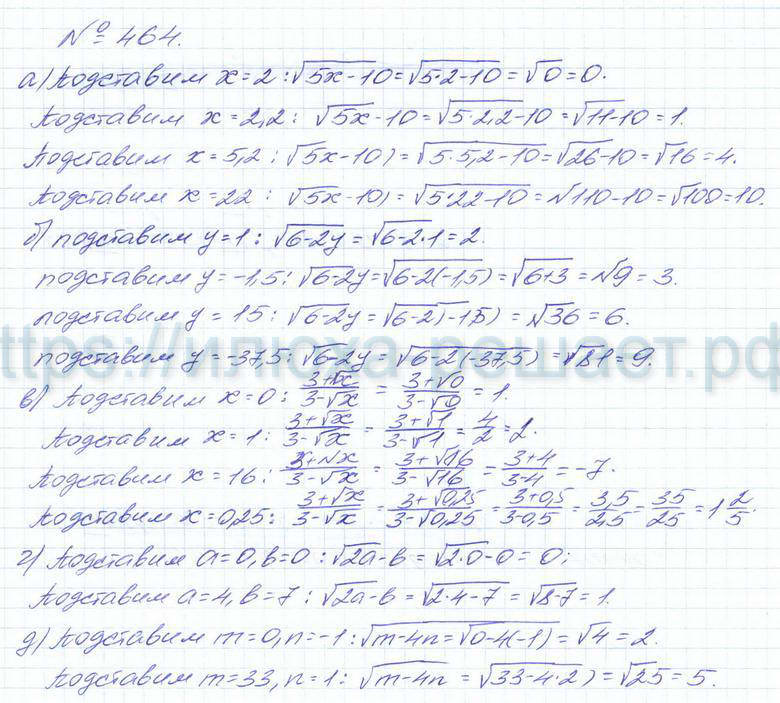 № 464.
а) Подставим x=2 : √5x-10 = √5·2-10 = √0 = 0.
Подставим x=2,2 : √5x-10 = √5·2,2-10 = √11-10 = 1.
Подставим x=5,2 : √5x-10) = √5·5,2-10 = √26-10 = √16 = 4.
Подставим x=22 : √5x-10) = √5·22-10 = √110-10 = √100 = 10.
б) подставим y=1 : √6-2y = √6-2·1 = 2.
подставим y=-1,5 : √6-2y = √6-2(-1,5) = √6+3 = √9 = 3.
подставим y=15 : √6-2y = √6-2)-15) = √36 = 6.
подставим y=-37,5 : √6-2y = √6-2(-37,5) = √81 = 9.
https://илюха-решает.рф
в) Подставим x=0 : 3+√x/3-√x = 3+√0/3-√0 = 1.
Подставим x=1 : 3+√x/3-√x = 3+√1/3-√1 = 4/2 = 2.
Подставим x=16 : 3+√x/3-√x = 3+√16/3-√16 = 3+4/3-4 = -7.
Подставим x=0,25 : 3+√x/3-√x = 3+√0,25/3-√0,25 = 3+0,5/3-0,5 = 3,5/2,5 = 35/25 = 1 2/5.
г) Подставим a=0, b=0 : √2a-b = √2·0-0 = 0;
Подставим a=4, b=7 : √2a-b = √2·4-7 = √8-7 = 1.
д) Подставим m=0, n=-1 : √m-4n = √0-4(-1) = √4 = 2.
Подставим m=33, n=1 : √m-4n = √33-4·2) = √25 = 5.